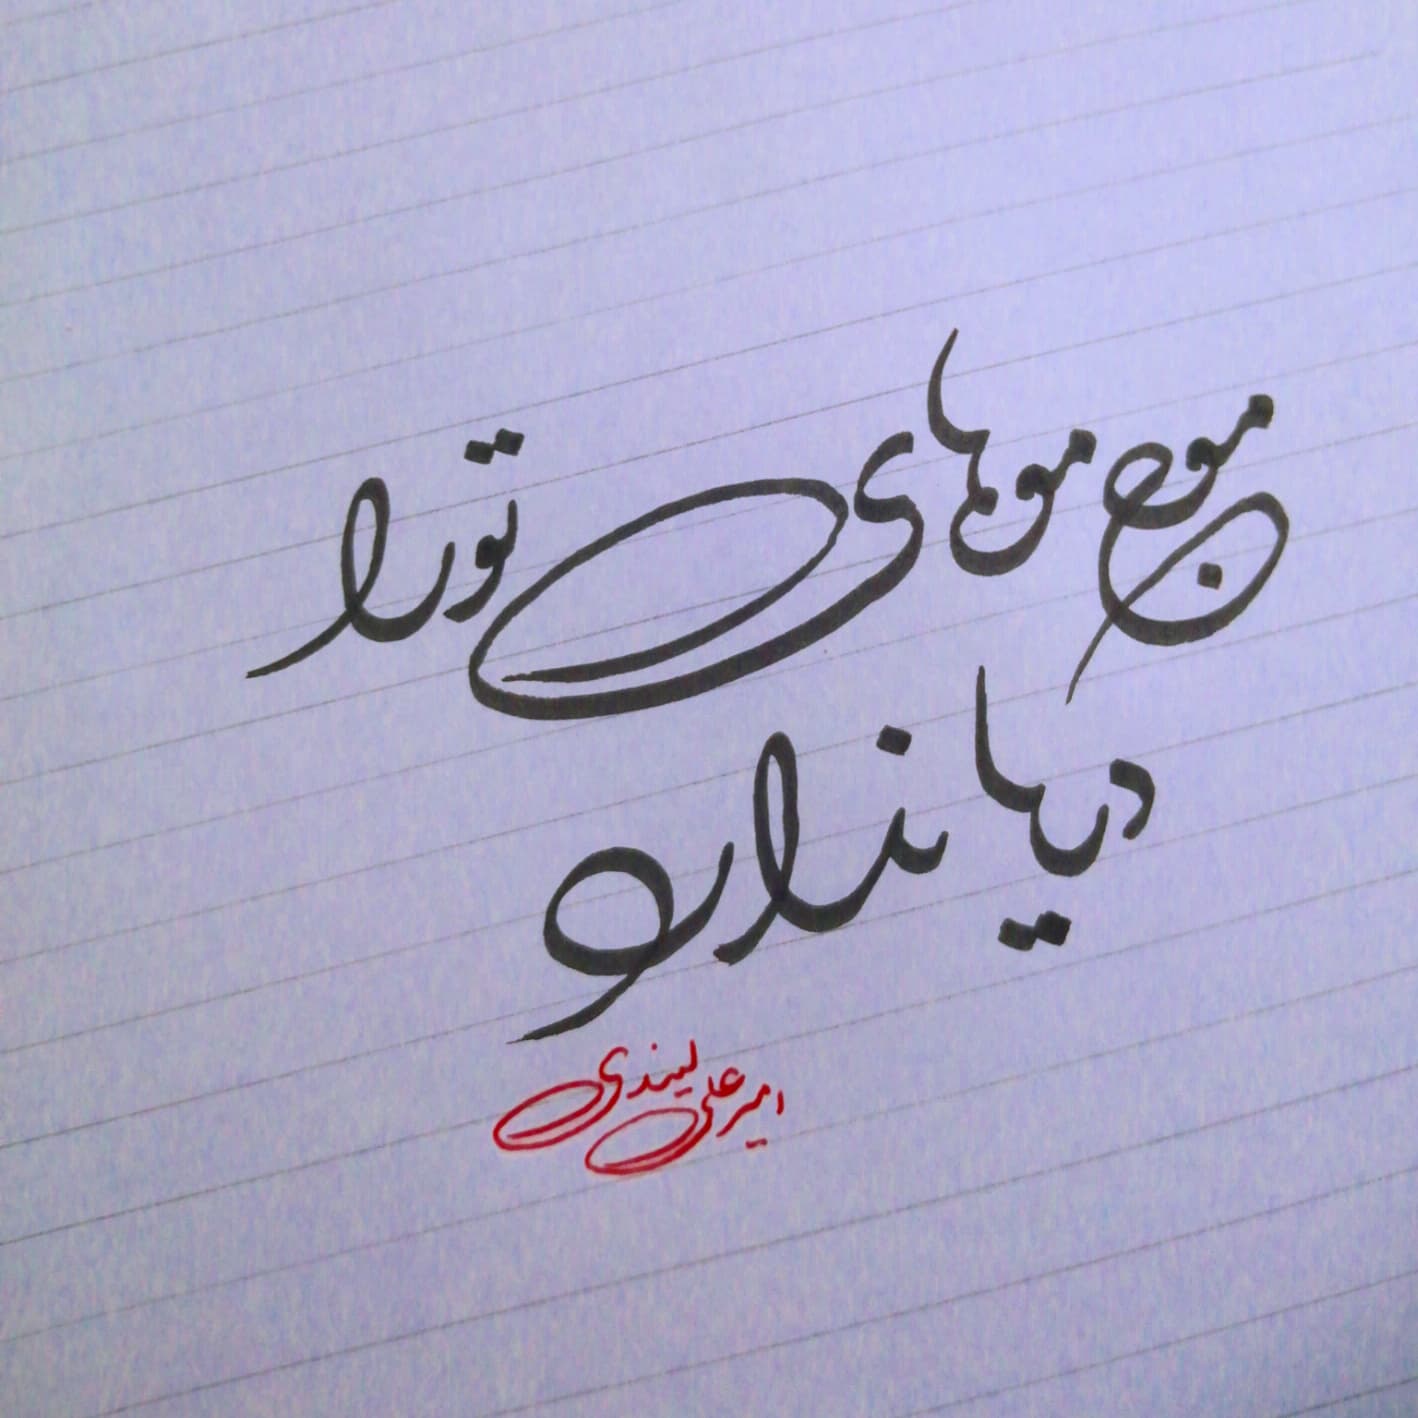 موج موهای تو را
دریا ندارد
امیرعلی